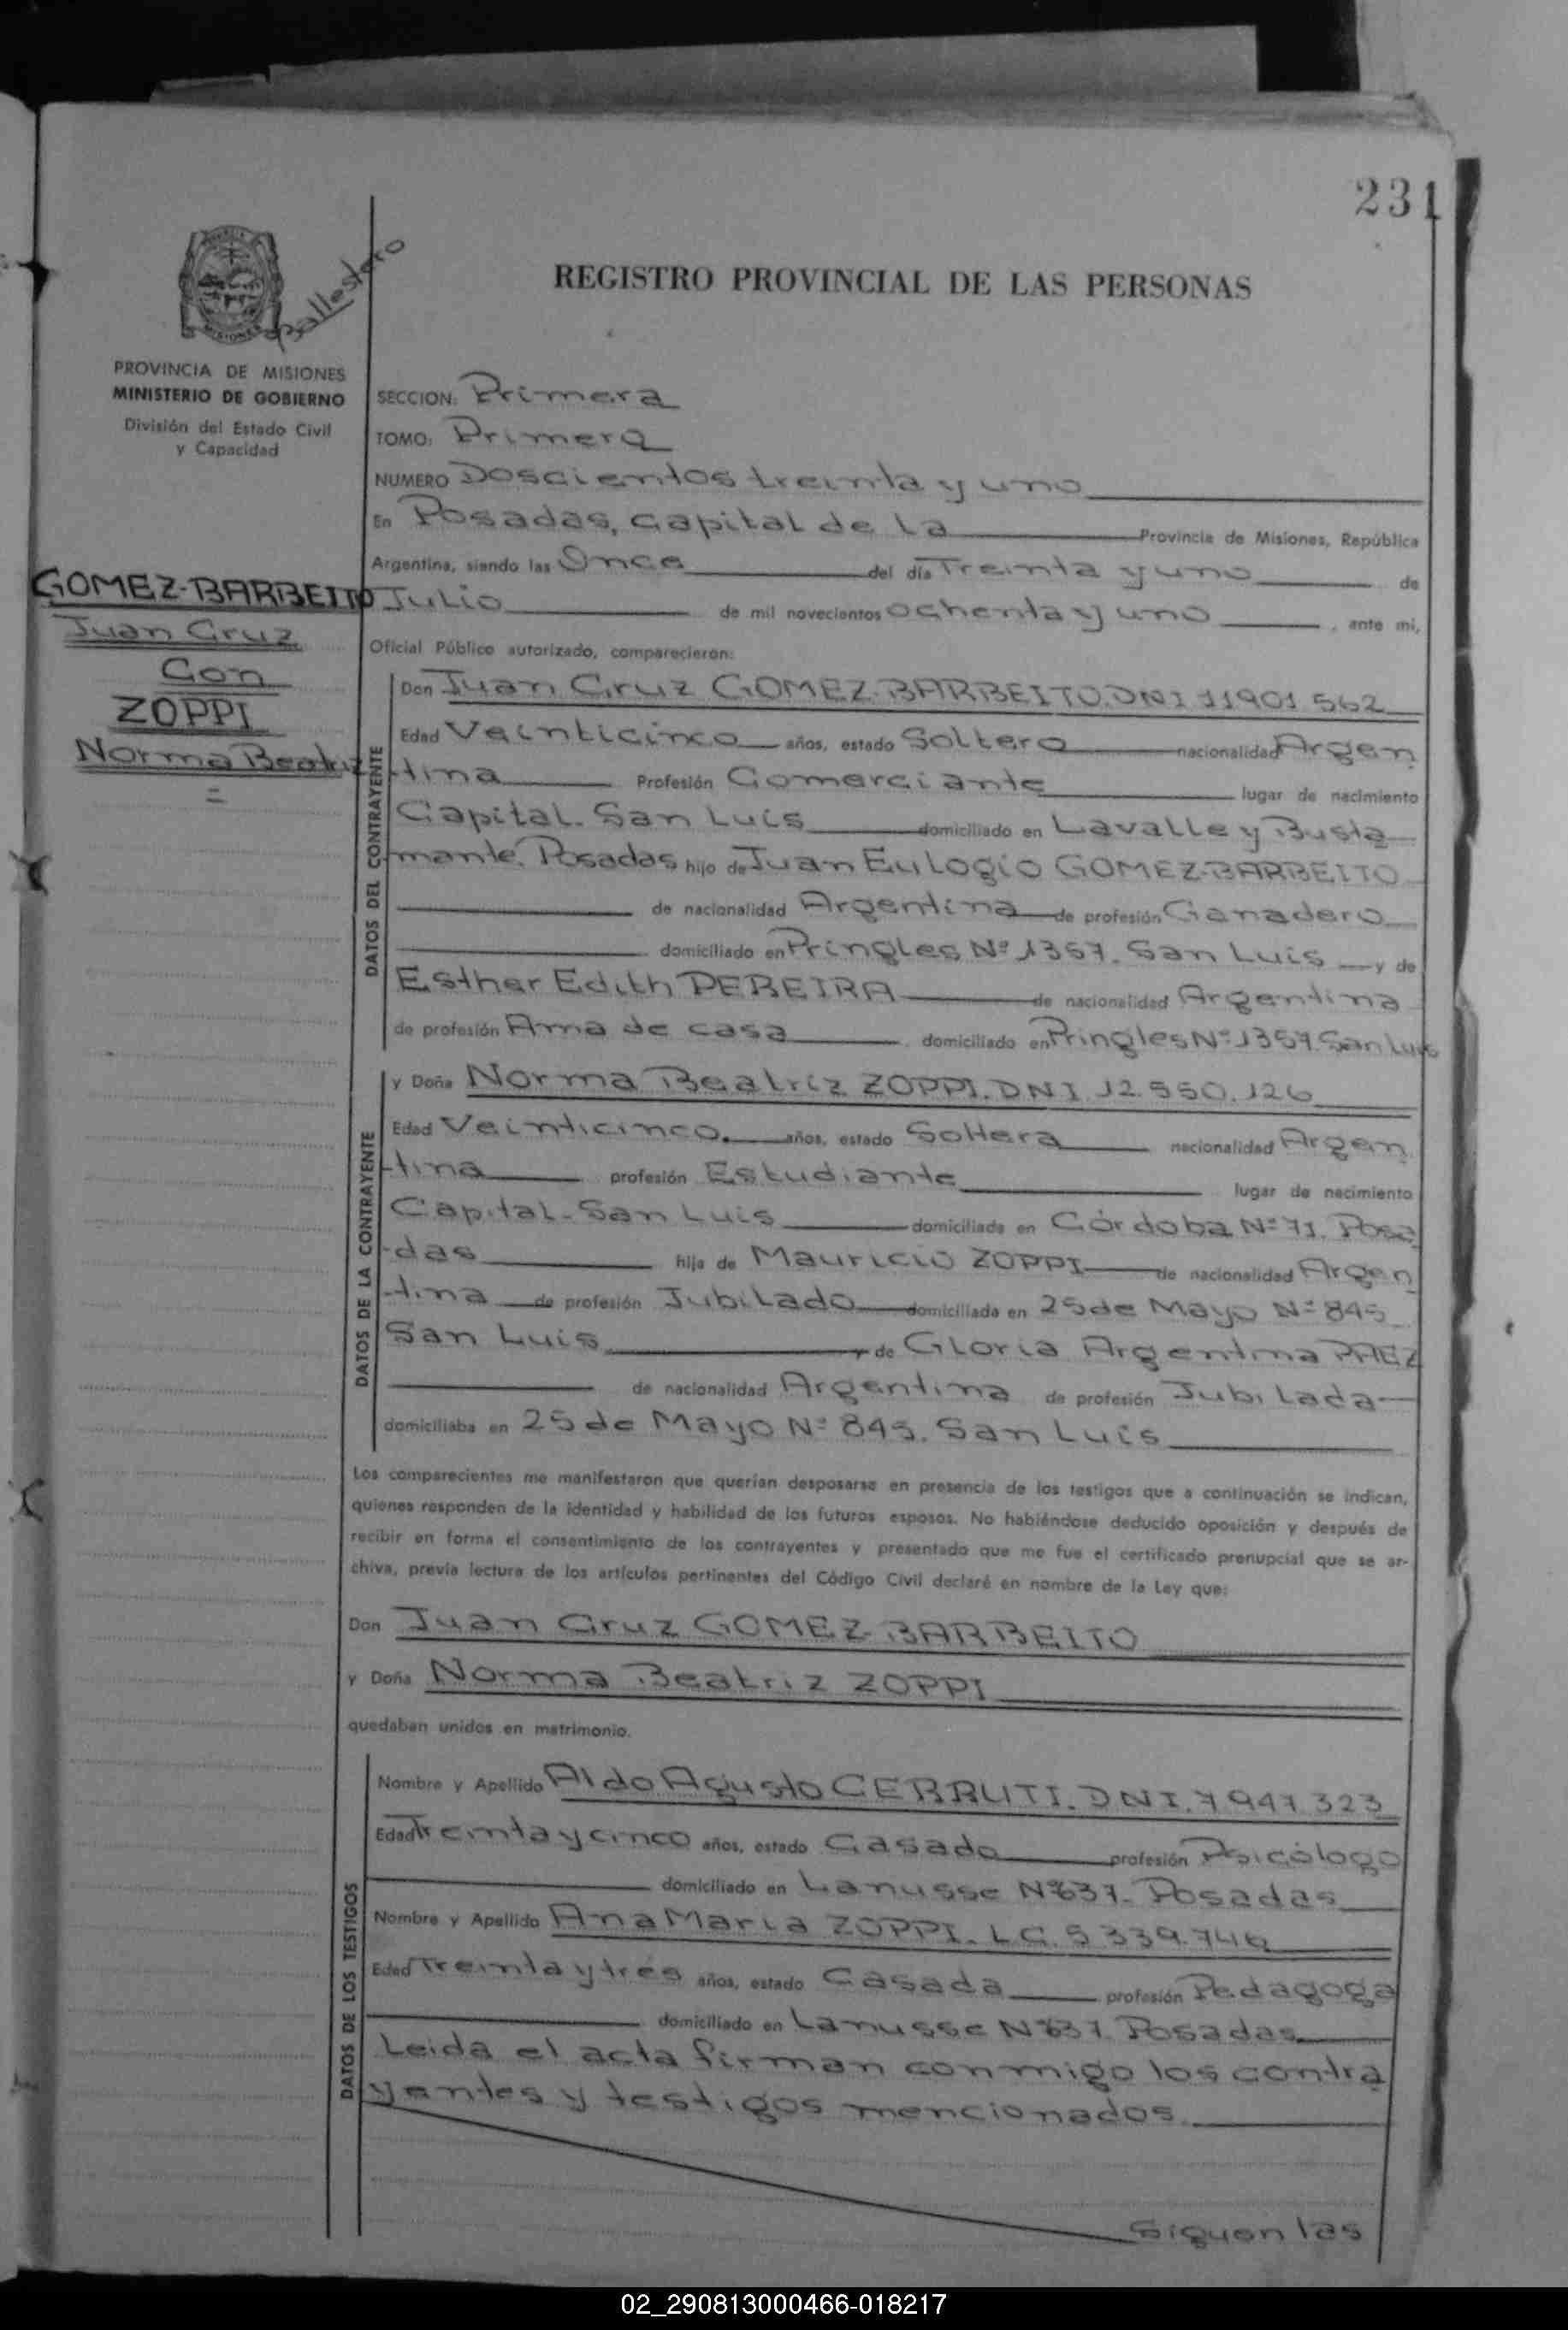 231
Ballestero
REGISTRO PROVINCIAL DE LAS PERSONAS
MISIONES
PROVINCIA DE MISIONES
MINISTERIO DE GOBIERNO
División del Estado Civil
y Capacidad
GOMEZ-BARBEITO
Juan Cruz
Con
ZOPPI
Norma Beatriz
=
SECCION: Primera
TOMO: Primera
NUMERO Doscientos treinta y uno
En Posadas, capital de la Provincia de Misiones, República
Argentina, siendo las Once del día Treinta y uno de
Julio de mil novecientos ochenta y uno, ante mi,
Oficial Público autorizado, comparecieron:
DATOS DEL CONTRAYENTE
Don Juan Cruz GOMEZ-BARBEITO. DNI 11901 562
Edad Veinticinco años, estado Soltero nacionalidad Argen
tina Profesión Comerciante lugar de nacimiento
Capital- San Luis domiciliado en Lavalle y Busta
mante. Posadas hijo de Juan Eulogio GOMEZ-BARBEITO
de nacionalidad Argentina de profesión Ganadero
domiciliado en Pringles Nº 1357. San Luis y de
Esther Edith PEREIRA de nacionalidad Argentina
de profesión Ama de casa domiciliado en Pringles Nº 1357. San Luis
DATOS DE LA CONTRAYENTE
y Doña Norma Beatriz ZOPPI. DNI 12.550.126
Edad Veinticinco. años, estado Soltera nacionalidad Argen
tina profesión Estudiante lugar de nacimiento
Capital- San Luis domiciliada en Córdoba Nº 71. Posa
-das hija de Mauricio ZOPPI de nacionalidad Argen
-tina de profesión Jubilado domiciliada en 25 de Mayo Nº 845
San Luis y de Gloria Argentina PAEZ
de nacionalidad Argentina de profesión Jubilada
domiciliaba en 25 de Mayo Nº 845. San Luis
Los comparecientes me manifestaron que querían desposarse en presencia de los testigos que a continuación se indican,
quienes responden de la identidad y habilidad de los futuros esposos. No habiéndose deducido oposición y después de
recibir en forma el consentimiento de los contrayentes y presentado que me fue el certificado prenupcial que se ar-
chiva, previa lectura de los artículos pertinentes del Código Civil declaré en nombre de la Ley que:
Don Juan Cruz GOMEZ-BARBEITO
y Doña Norma Beatriz ZOPPI
quedaban unidos en matrimonio.
DATOS DE LOS TESTIGOS
Nombre y Apellido Aldo Agusto CERRUTI. DNI. 7947 323
Edad Treinta y cinco años, estado Casado profesión Psicólogo
domiciliado en Lanusse Nº 637- Posadas
Nombre y Apellido Ana Maria ZOPPI. LC. 5 339.746
Edad Treinta y tres años, estado Casada profesión Pedagoga
domiciliado en Lanusse Nº 637. Posadas
Leida el acta firman conmigo los contra
yentes y testigos mencionados.
Siguen las
02_290813000466-018217